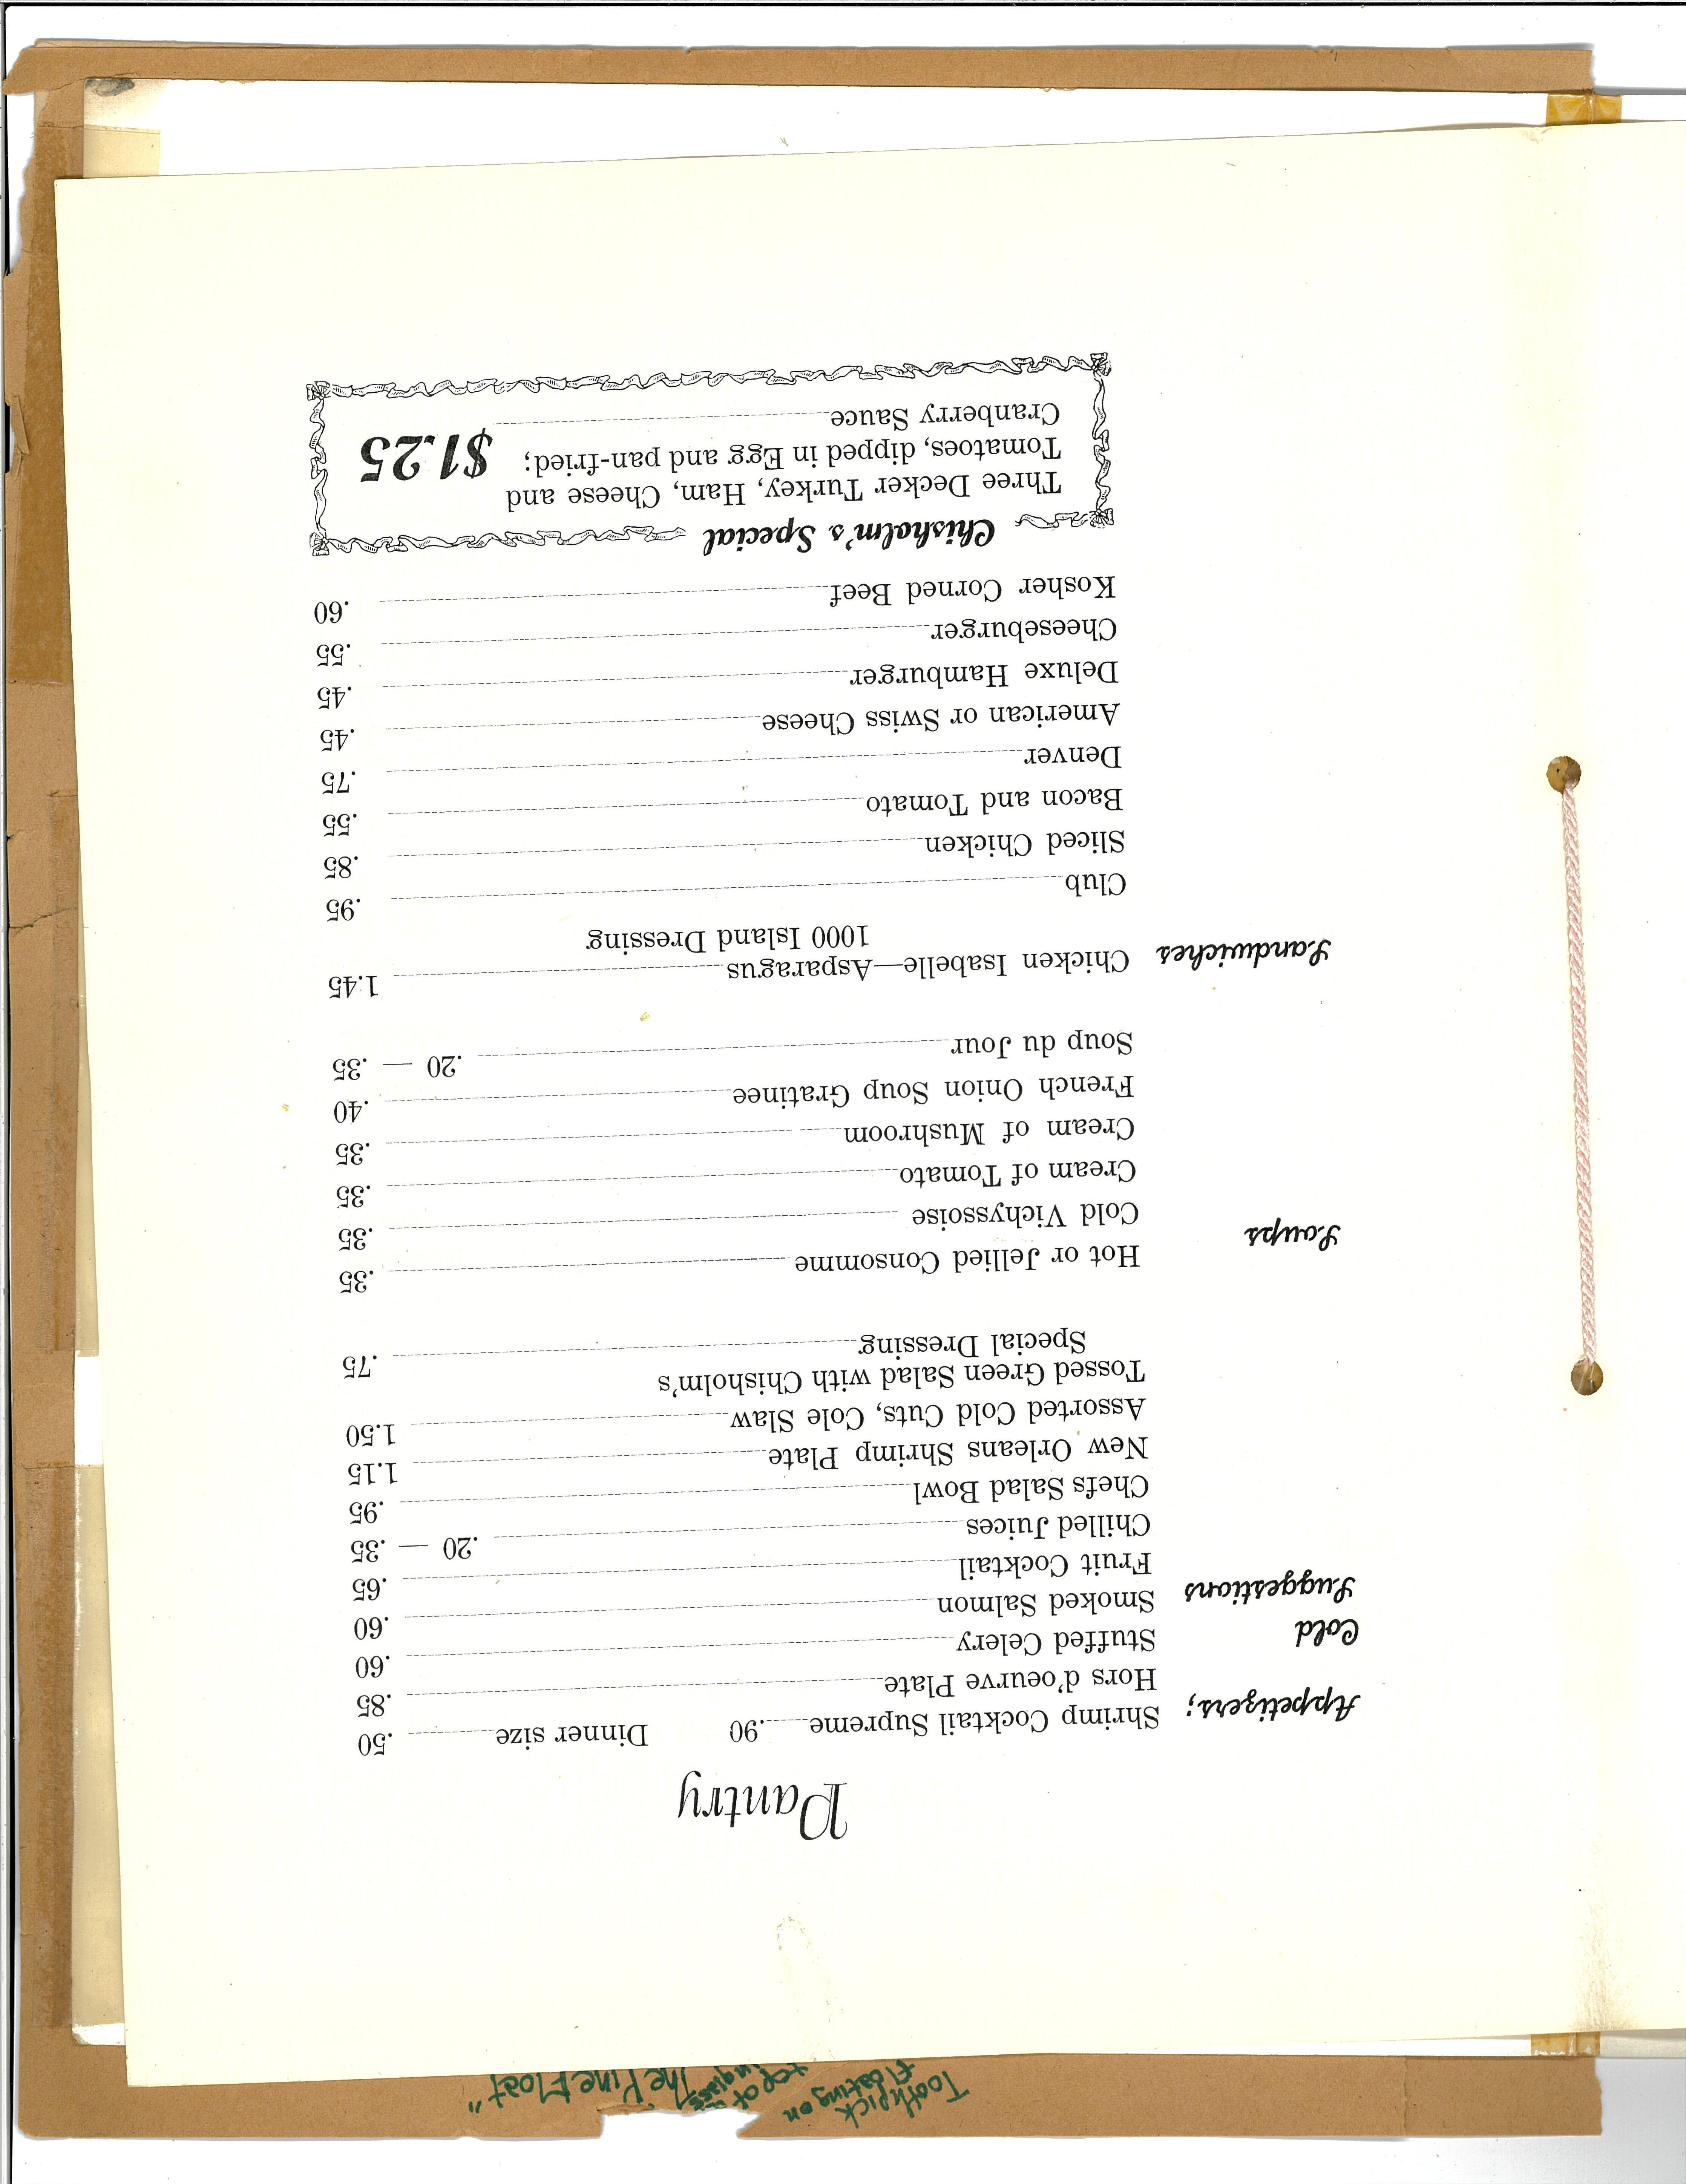 Pantry
Appetizers; Shrimp Cocktail Supreme .90 Dinner size .50
Hors d'oeurve Plate .85
Cold Stuffed Celery .60
Suggestions Smoked Salmon .60
Fruit Cocktail .65
Chilled Juices .20 — .35
Chefs Salad Bowl .95
New Orleans Shrimp Plate 1.15
Assorted Cold Cuts, Cole Slaw 1.50
Tossed Green Salad with Chisholm's
Special Dressing .75
Soups Hot or Jellied Consomme .35
Cold Vichyssoise .35
Cream of Tomato .35
Cream of Mushroom .35
French Onion Soup Gratinee .40
Soup du Jour .20 — .35
Sandwiches Chicken Isabelle—Asparagus 1.45
1000 Island Dressing
Club .95
Sliced Chicken .85
Bacon and Tomato .55
Denver .75
American or Swiss Cheese .45
Deluxe Hamburger .45
Cheeseburger .55
Kosher Corned Beef .60
Chisholm's Special
Three Decker Turkey, Ham, Cheese and
Tomatoes, dipped in Egg and pan-fried;
Cranberry Sauce $1.25
Toothpick
Floating on
top of
"The Pine Float"